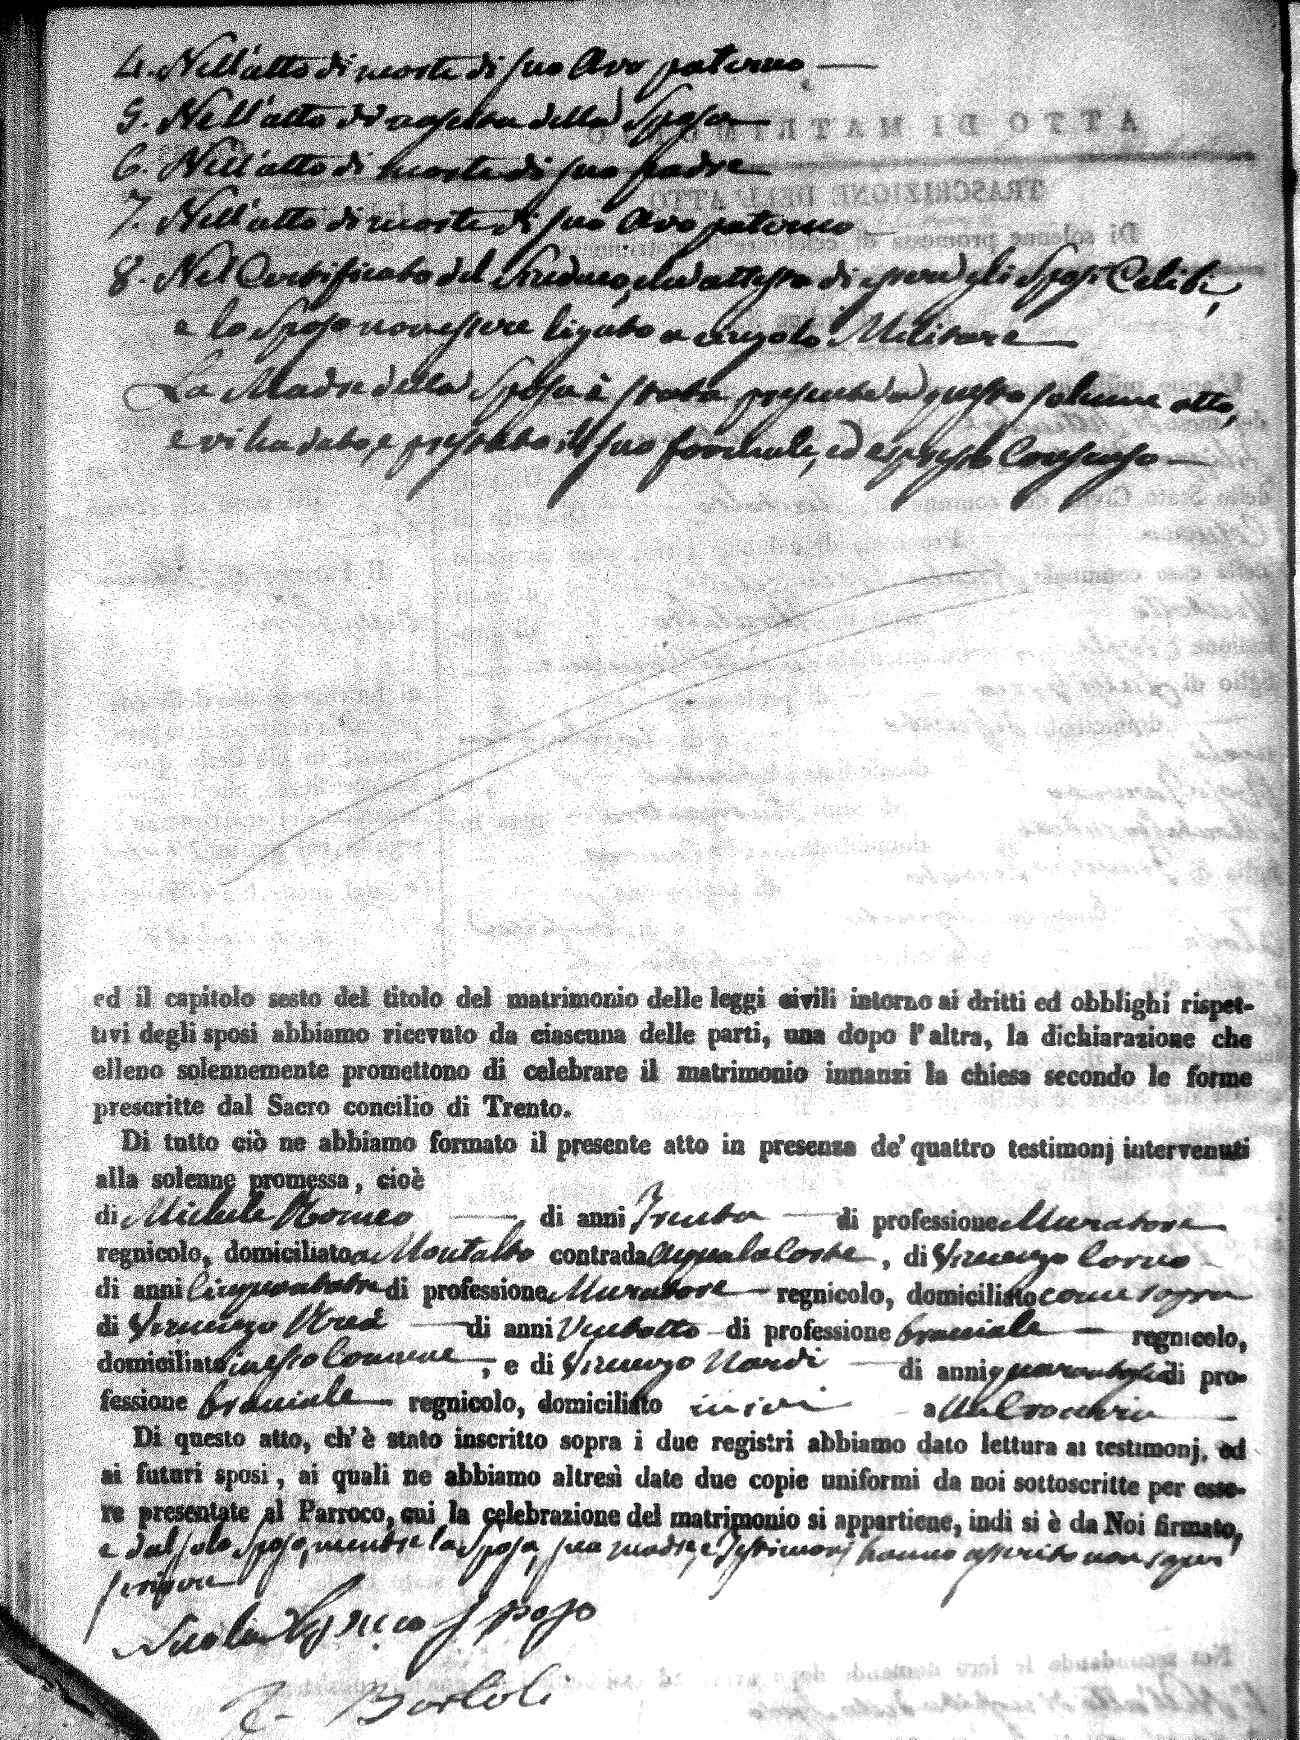 4. Nell'atto di morte di suo Avo paterno —
5. Nell'atto di nascita della Sposa
6. Nell'atto di morte di suo padre
7. Nell'atto di morte di suo Avo paterno —
8. Nel Certificato del Sindaco, che attesta di essere gli Sposi Celibi,
e lo Sposo non essere ligato a cingolo Militare —
La Madre della Sposa è stata presente a questo solenne atto,
e vi ha dato, e prestato il suo formale, ed espresso Consenso —
ed il capitolo sesto del titolo del matrimonio delle leggi civili intorno ai dritti ed obblighi rispet-
tivi degli sposi abbiamo ricevuto da ciascuna delle parti, una dopo l'altra, la dichiarazione che
elleno solennemente promettono di celebrare il matrimonio innanzi la chiesa secondo le forme
prescritte dal Sacro concilio di Trento.
Di tutto ciò ne abbiamo formato il presente atto in presenza de' quattro testimonj intervenuti
alla solenne promessa, cioè
di Michele Romeo — di anni Trenta — di professione Muratore
regnicolo, domiciliato a Montalto contrada , di Vincenzo
di anni di professione Muratore — regnicolo, domiciliato come sopra
di Vincenzo — di anni Ventotto di professione bracciale — regnicolo,
domiciliato in esso Comune —, e di Vincenzo Nardi — di anni di pro-
fessione bracciale — regnicolo, domiciliato ivi — a
Di questo atto, ch'è stato inscritto sopra i due registri abbiamo dato lettura ai testimonj, ed
ai futuri sposi, ai quali ne abbiamo altresì date due copie uniformi da noi sottoscritte per esse-
re presentate al Parroco, cui la celebrazione del matrimonio si appartiene, indi si è da Noi firmato,
e dal solo Sposo, mentre la Sposa, sua madre, e Testimonj hanno asserito non saper
scrivere
Sposo
Bortoli